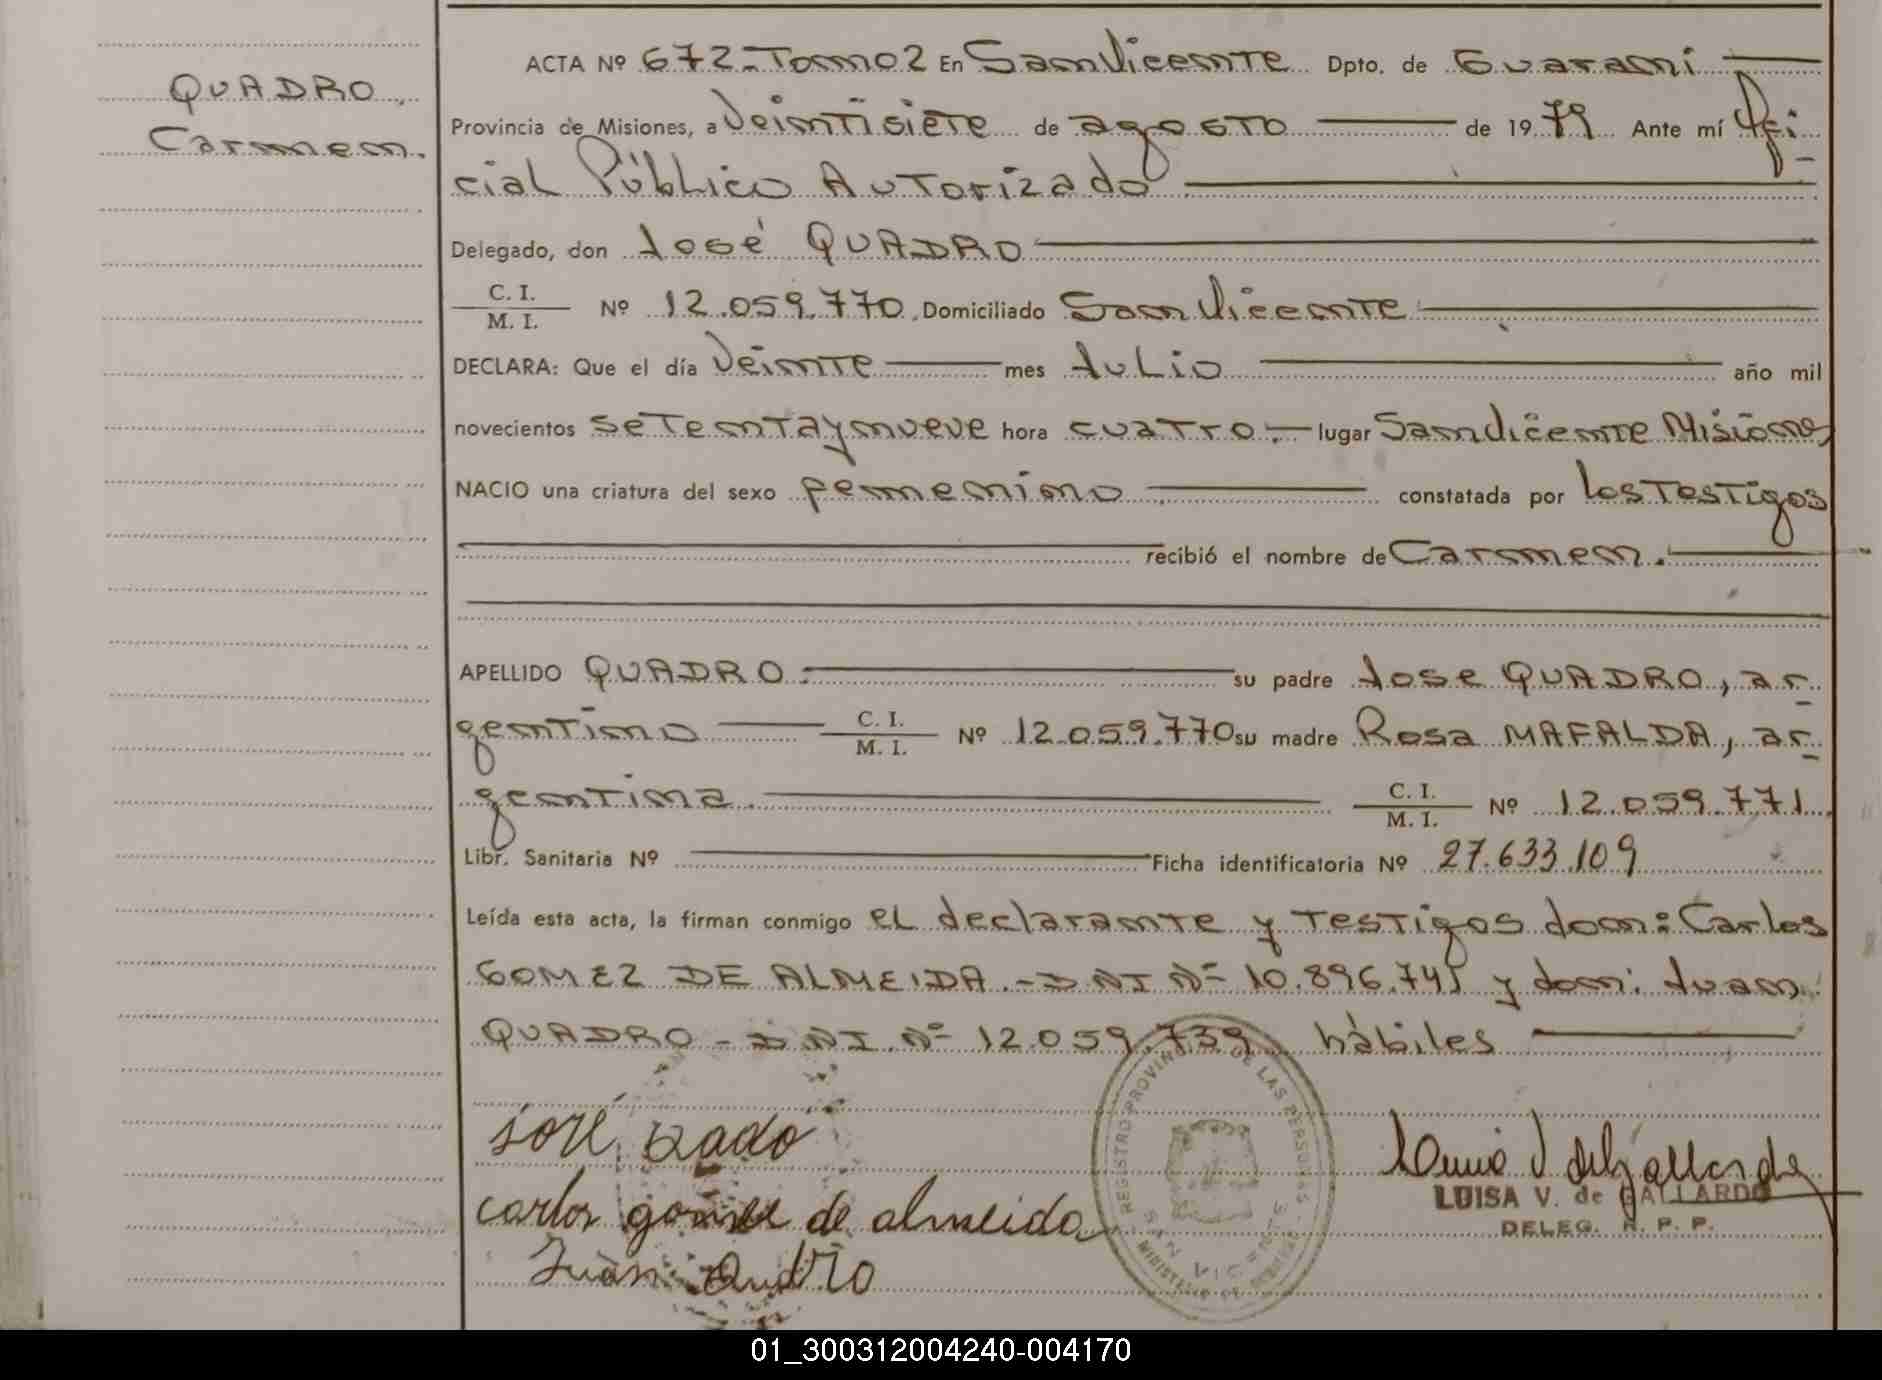 QUADRO,
Carmen.
ACTA Nº 672-Tomo 2 En San Vicente Dpto. de Guaraní
Provincia de Misiones, a Veintisiete de agosto de 1979 Ante mí Ofi-
cial Público Autorizado
Delegado, don José QUADRO
C. I. / M. I. Nº 12.059.770 Domiciliado San Vicente
DECLARA: Que el día Veinte mes Julio año mil
novecientos setenta y nueve hora cuatro.- lugar San Vicente Misiones
NACIO una criatura del sexo femenino constatada por los Testigos
recibió el nombre de Carmen.
APELLIDO QUADRO.- su padre Jose QUADRO, ar-
gentino C. I. / M. I. Nº 12.059.770 su madre Rosa MAFALDA, ar-
gentina. C. I. / M. I. Nº 12.059.771
Libr. Sanitaria Nº Ficha identificatoria Nº 27.633.109
Leída esta acta, la firman conmigo el declarante y Testigos don: Carlos
GOMEZ DE ALMEIDA.- DNI Nº 10.896.745 y don: Juan
QUADRO - DNI Nº 12.059.739 hábiles
José
carlos gomez de almeida
Juàn
REGISTRO PROVINCIAL DE LAS PERSONAS
SAN VICENTE
LUISA V. de GALLARDO
DELEG. R. P. P.
01_300312004240-004170